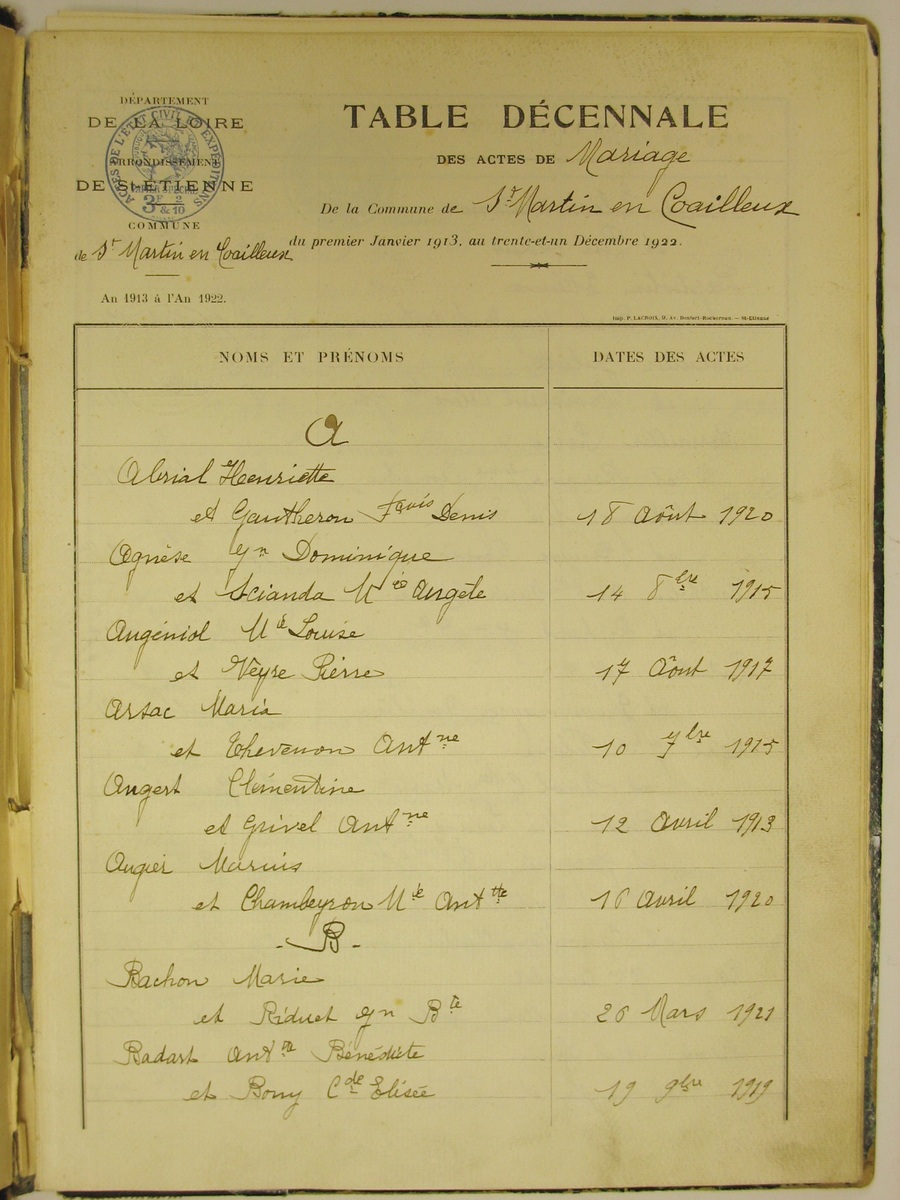 DÉPARTEMENT
DE LA LOIRE
ARRONDISSEMENT
DE St-ETIENNE
COMMUNE
de St Martin en Coailleux
An 1913 à l'An 1922.
ACTES DE L'ÉTAT CIVIL EXPÉDITIONS
PAPIER SPÉCIAL
3F 2
& 10
TABLE DÉCENNALE
DES ACTES DE Mariage
De la Commune de St Martin en Coailleux
du premier Janvier 1913, au trente-et-un Décembre 1922.
Imp. P. LACROIX, — St-Etienne
NOMS ET PRÉNOMS DATES DES ACTES
A
Abrial Henriette
et Gautheron Fçois Denis 18 Août 1920
Agnèse Jn Dominique
et Scianda Mie Angèle 14 8bre 1915
Augéniol Mie Louise
et Vèyre Pierre 17 Août 1917
Arsac Maria
et Thevenon Antne 10 7bre 1915
Angert Clémentine
et Grivel Antne 12 Avril 1913
Augier Marius
et Chambeyron Mie Anttte 16 Avril 1920
- B -
Bachon Marie
et Riduet Jn Bte 26 Mars 1921
Badart Antne Bénédicte
et Bony Cde Elisée 19 9bre 1919